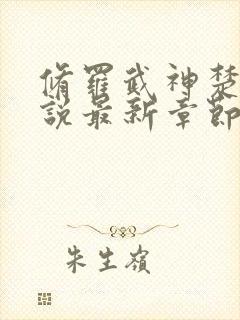 脩羅武神楚
說最新章節
朱生嶺